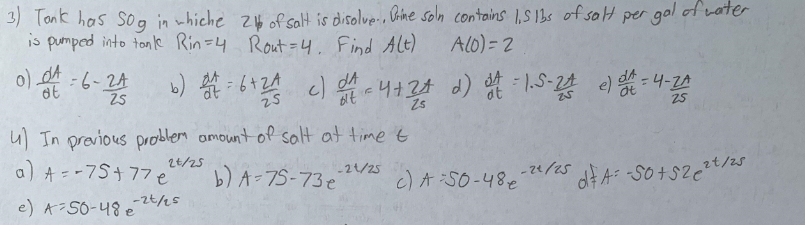 3) Tank has 50g in whiche 2lb of salt is disolve.. Brine soln contains 1,5 lbs of salt per gal of water
is pumped into tank Rin=4 Rout=4. Find A(t) A(0)=2
a) dA/dt = 6 - 2A/25 b) dA/dt = 6 + 2A/25 c) dA/dt = 4 + 2A/25 d) dA/dt = 1.5 - 2A/25 e) dA/dt = 4 - 2A/25
4) In previous problem amount of salt at time t
a) A = -75 + 77e^2t/25 b) A = 75 - 73e^-2t/25 c) A = 50 - 48e^-2t/25 d) A = -50 + 52e^2t/25
e) A = 50 - 48e^-2t/25